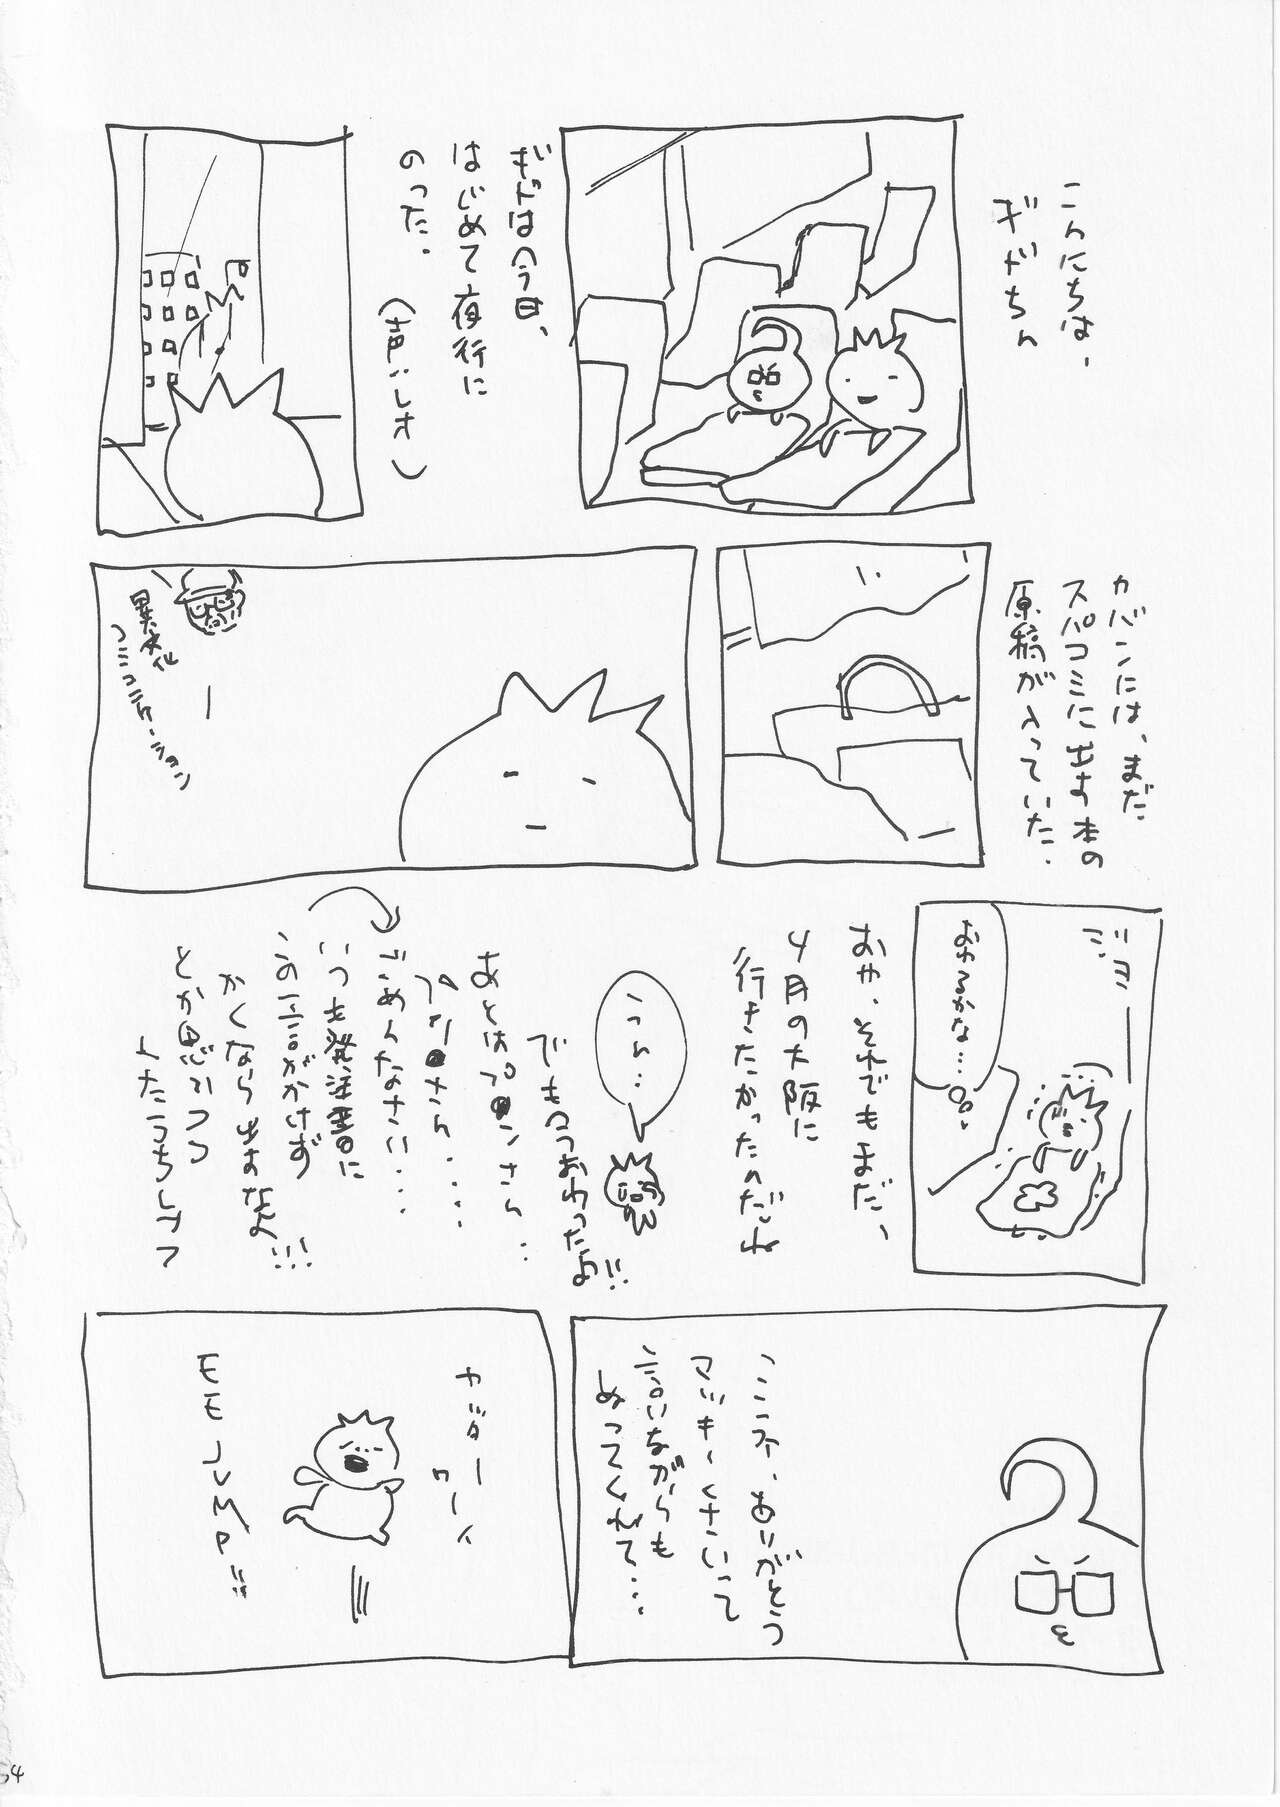 こんにちは、
ギドちん
ギドは今日、
はじめて夜行に
のった。
(声:レオ)
カバンには、まだ
スパコミに出す本の
原稿が入っていた。
異文化
コミュニケーション
おわるかな…
おや、それでもまだ、
4月の大阪に
行きたかったのだね
でもつつおわったよ!!
ごめんなさい・・・
いつも発注書に
この一言がかけず
かくなら出すなよ!!!
とか思いつつ
ここファ、ありがとう
マッキーくさいって
言いながらも
ぬってくれて・・・
ヤッター
ワーイ
EE JUMP!!
54